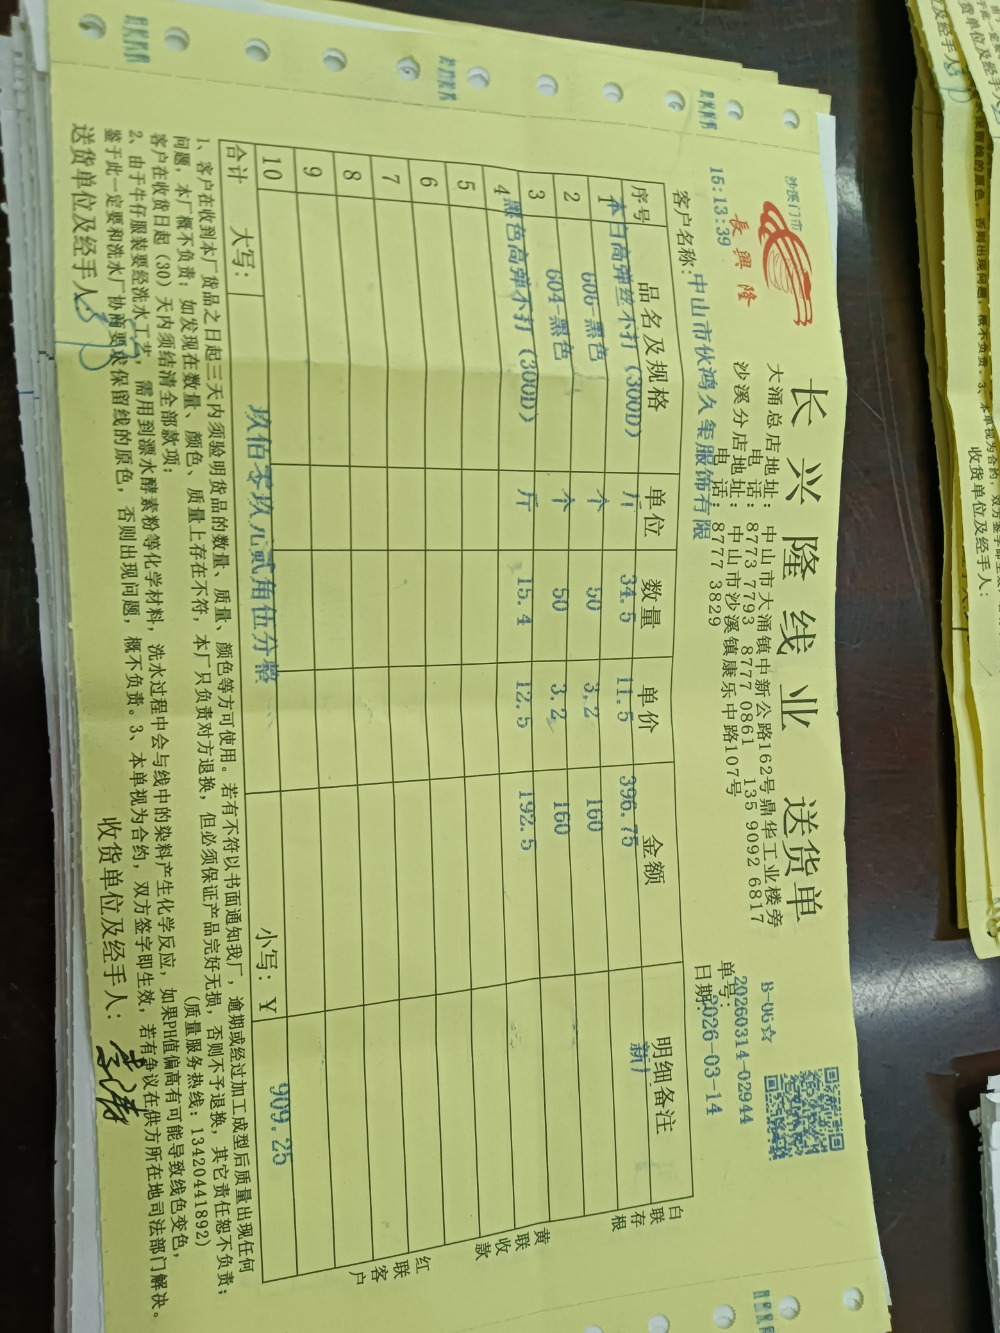 沙溪门市
長興隆
15:13:39
长兴隆线业 送货单
大涌总店地址：中山市大涌镇中新公路162号鼎华工业楼旁
电 话：8773 7793 8777 0861 135 9092 6817
沙溪分店地址：中山市沙溪镇康乐中路107号
电 话：8777 3829
B-06☆
单号：20260314-02944
日期：2026-03-14
客户名称：中山市伙鸿久玺服饰有限
序号 品名及规格 单位 数量 单价 金额 明细备注
1 本白高弹丝不打（300D） 斤 34.5 11.5 396.75 新厂
2 606-黑色 个 50 3.2 160
3 604-黑色 个 50 3.2 160
4 黑色高弹不打（300D） 斤 15.4 12.5 192.5
5
6
7
8
9
10
合计 大写：玖佰零玖元贰角伍分整 小写：¥ 909.25
白联存根
黄联收款
红联客户
1、客户在收到本厂货品之日起三天内须验明货品的数量、质量、颜色等方可使用。若有不符以书面通知我厂，逾期或经过加工成型后质量出现任何
问题，本厂概不负责；如发现在数量、颜色、质量上存在不符，本厂只负责对方退换，但必须保证产品完好无损，否则不予退换，其它责任恕不负责；
客户在收货日起（30）天内须结清全部款项； （质量服务热线：13420441892）
2、由于牛仔服装要经洗水工艺，需用到漂水酵素粉等化学材料，洗水过程中会与线中的染料产生化学反应，如果PH值偏高有可能导致线色变色，
鉴于此一定要和洗水厂协商要求保留线的原色，否则出现问题，概不负责。3、本单视为合约，双方签字即生效，若有争议在供方所在地司法部门解决。
送货单位及经手人：
收货单位及经手人：
收货单位及经手人：